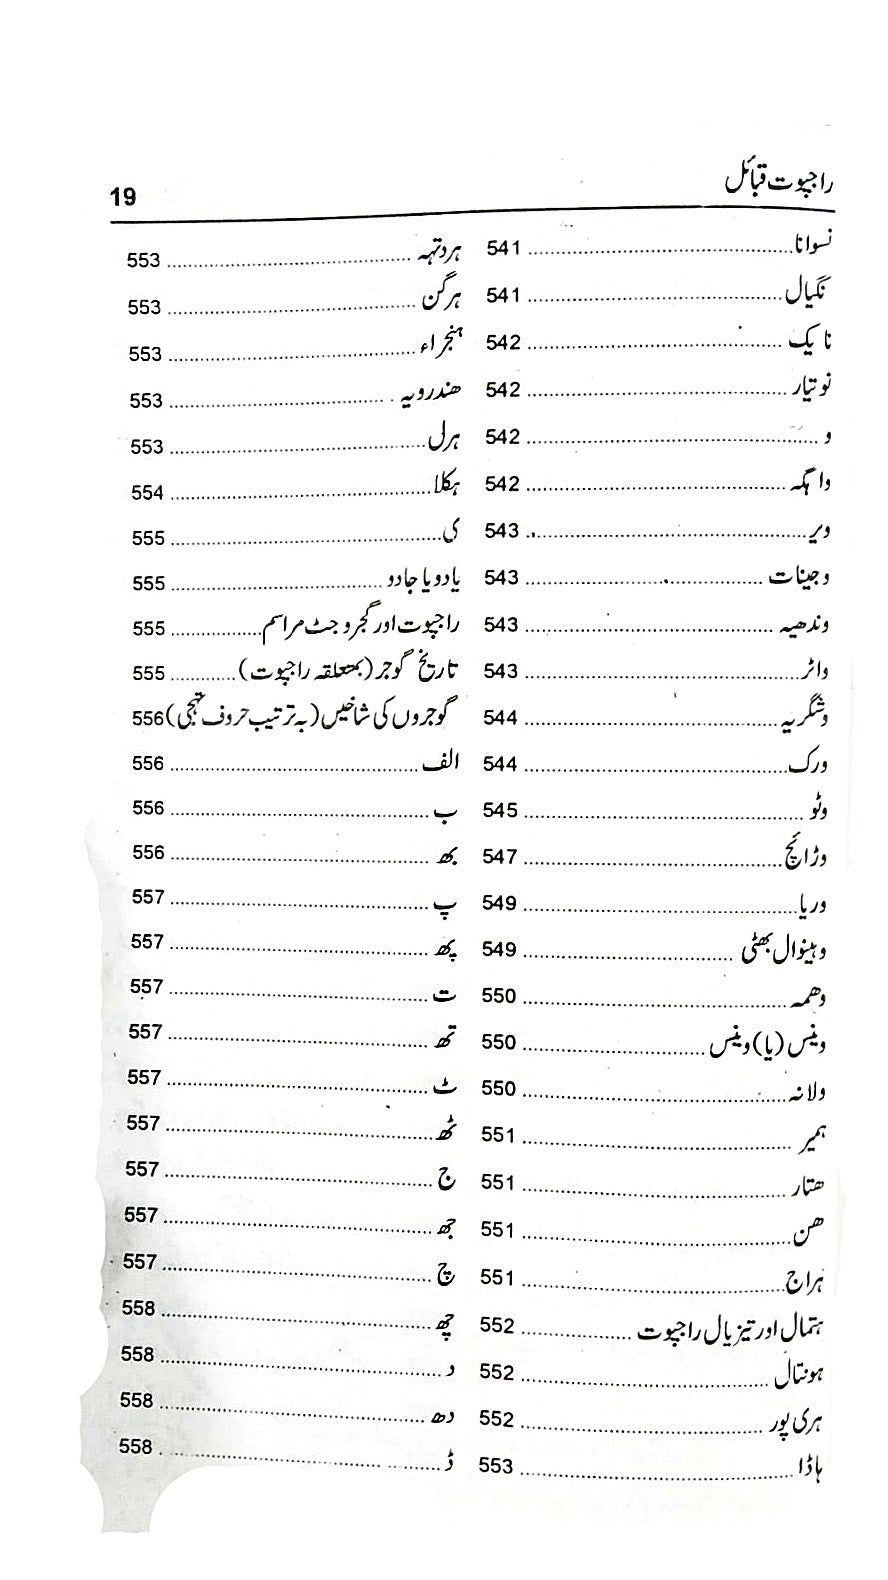 راجپوت قبائل
19
نسوانا 541
نگیال 541
نایک 542
نوتیار 542
و 542
واہگہ 542
ویر 543
وجینات 543
وندھیہ 543
واٹر 543
وشگریہ 544
ورک 544
وٹو 545
وڑائچ 547
وریا 549
وہینوال بھٹی 549
وھمہ 550
وینس (یا) وینس 550
ولانہ 550
ہمیر 551
ھتار 551
ھن 551
ہراج 551
ہتمال اور تیزیال راجپوت 552
ہونتال 552
ہری پور 552
ہاڈا 553
ہردتہہ 553
ہرگن 553
ہنجراء 553
ھندرویہ 553
ہرل 553
ہکلا 554
ی 555
یادو یا جادو 555
راجپوت اور گجر و جٹ مراسم 555
تاریخ گوجر (بمتعلقہ راجپوت) 555
گوجروں کی شاخیں (بہ ترتیب حروف تہجی) 556
الف 556
ب 556
بھ 556
پ 557
پھ 557
ت 557
تھ 557
ٹ 557
ٹھ 557
ج 557
جھ 557
چ 557
چھ 558
د 558
دھ 558
ڈ 558